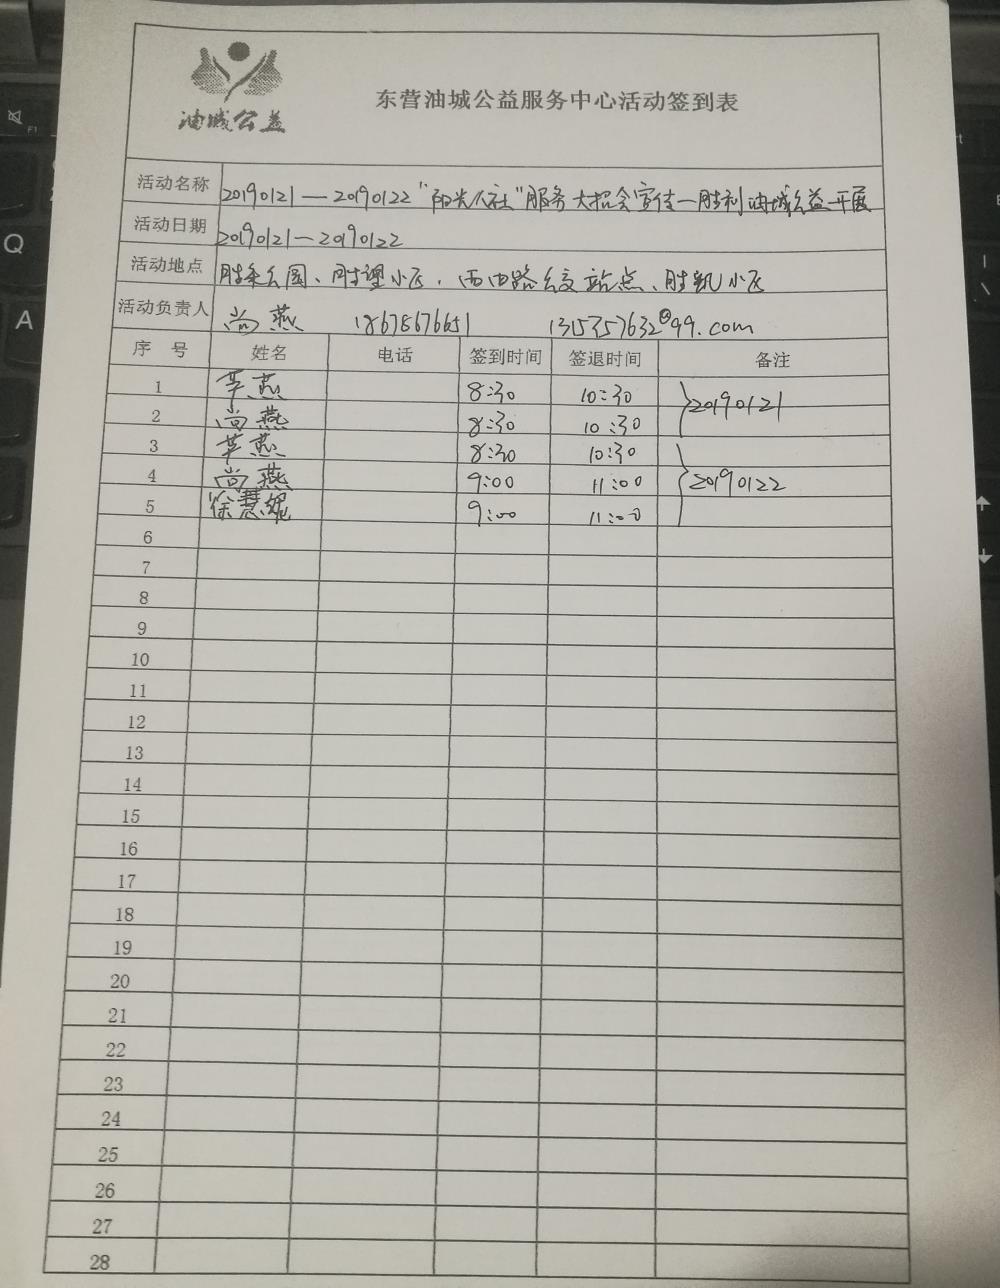 油城公益
东营油城公益服务中心活动签到表
活动名称 20190121—20190122“阳光人社”服务大招会宣传—胜利油城公益开展
活动日期 20190121—20190122
活动地点 胜采公园、胜理小区、西四路公交站点、胜凯小区
活动负责人 尚燕 18678676651 1315357632@99.com
序号 姓名 电话 签到时间 签退时间 备注
1 燕 8:30 10:30 20190121
2 尚燕 8:30 10:30
3 燕 8:30 10:30
4 尚燕 9:00 11:00 20190122
5 徐慧妮 9:00 11:00
6
7
8
9
10
11
12
13
14
15
16
17
18
19
20
21
22
23
24
25
26
27
28